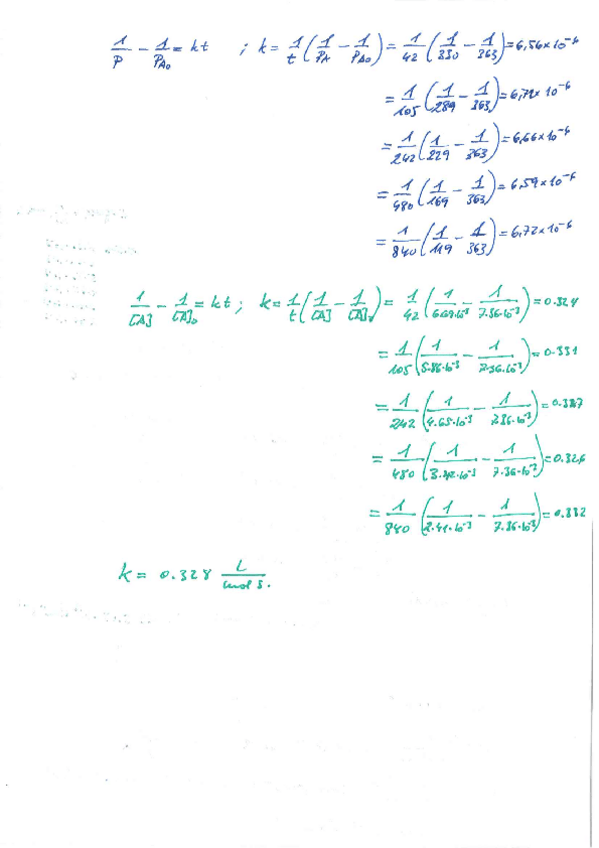 1/P - 1/P_A0 = kt ; k = 1/t (1/P_A - 1/P_A0) = 1/42 (1/330 - 1/363) = 6,56×10⁻⁶
= 1/105 (1/289 - 1/363) = 6,72×10⁻⁶
= 1/242 (1/229 - 1/363) = 6,66×10⁻⁶
= 1/480 (1/169 - 1/363) = 6,59×10⁻⁶
= 1/840 (1/119 - 1/363) = 6,72×10⁻⁶
1/[A] - 1/[A]₀ = kt ; k = 1/t (1/[A] - 1/[A]₀) = 1/42 (1/6.69·10⁻³ - 1/7.36·10⁻³) = 0.324
= 1/105 (1/5.86·10⁻³ - 1/7.36·10⁻³) = 0.331
= 1/242 (1/4.65·10⁻³ - 1/7.36·10⁻³) = 0.327
= 1/480 (1/3.42·10⁻³ - 1/7.36·10⁻³) = 0.326
= 1/840 (1/2.41·10⁻³ - 1/7.36·10⁻³) = 0.332
k = 0.328 L/mol s.